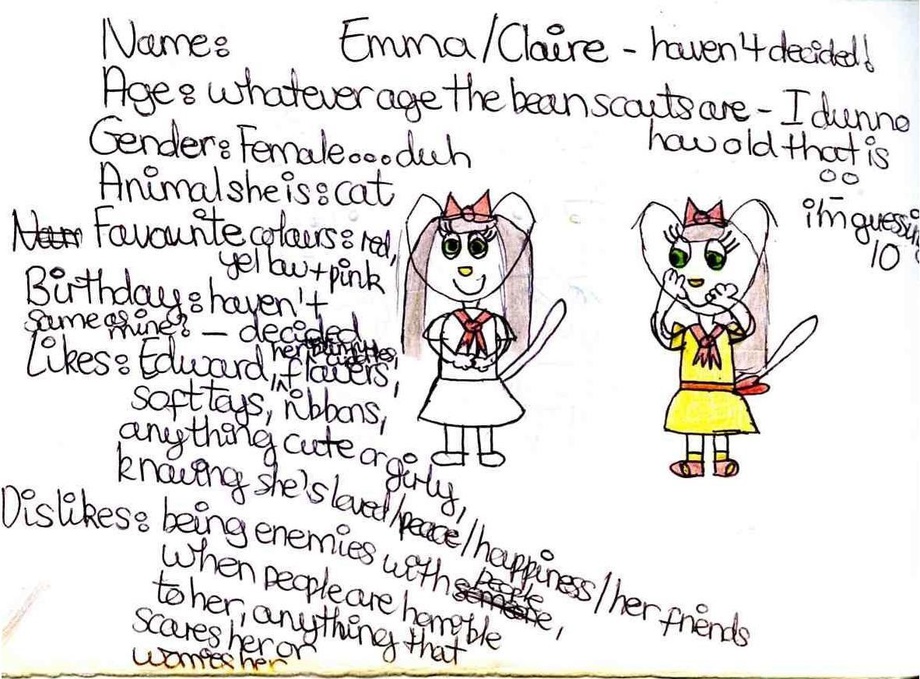 Name: Emma/Claire - haven't decided!
Age: whatever age the bean scouts are - I dunno
how old that is
Gender: Female...duh
Animal she is: cat
i'm guessin
10
Favourite colours: red,
yellow + pink
Birthday: haven't
same as mine? - decided
Likes: Edward, flowers,
soft toys, ribbons,
anything cute or girly,
knowing she's loved/peace/happiness/her friends
Dislikes: being enemies with people,
when people are horrible
to her, anything that
scares her or
worries her